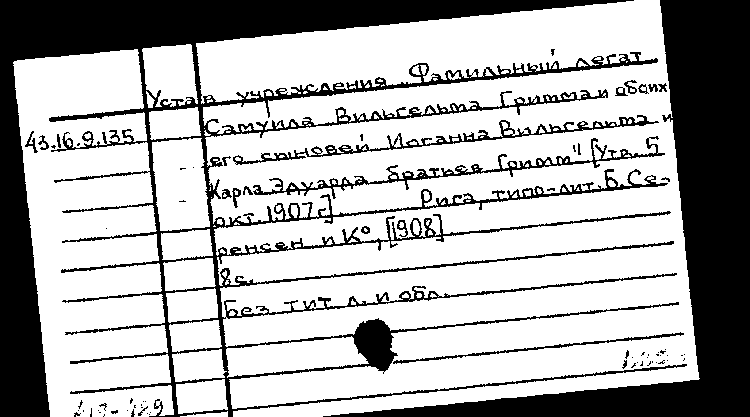 Устав учреждения „Фамильный легат
43.16.9.135 Самуила Вильгельма Гримма и обоих
его сыновей Иоганна Вильгельма и
Карла Эдуарда братьев Гримм" [Утв. 5
окт. 1907 г.]. Рига, типо-лит. Б. Се-
ренсен и К°, [1908]
8с.
Без тит л. и обл.